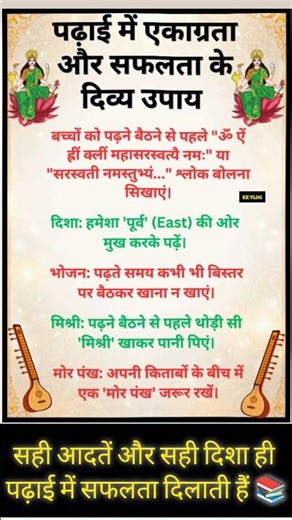 पढ़ाई में एकाग्रता
और सफलता के
दिव्य उपाय
बच्चों को पढ़ने बैठने से पहले "ॐ ऐं
ह्रीं क्लीं महासरस्वत्यै नमः" या
"सरस्वती नमस्तुभ्यं..." श्लोक बोलना
सिखाएं।
KK VLOG
दिशा: हमेशा 'पूर्व' (East) की ओर
मुख करके पढ़ें।
भोजन: पढ़ते समय कभी भी बिस्तर
पर बैठकर खाना न खाएं।
मिश्री: पढ़ने बैठने से पहले थोड़ी सी
'मिश्री' खाकर पानी पिएं।
मोर पंख: अपनी किताबों के बीच में
एक 'मोर पंख' जरूर रखें।
सही आदतें और सही दिशा ही
पढ़ाई में सफलता दिलाती हैं 📚